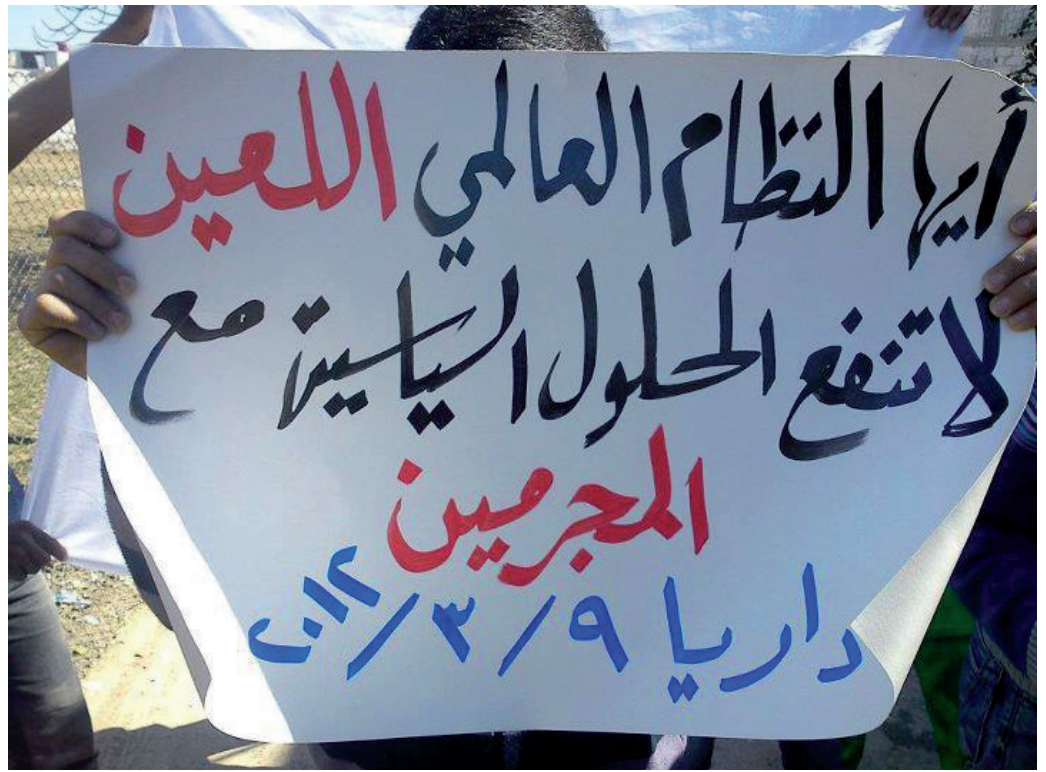 أيها النظام العالمي اللعين
لا تنفع الحلول السياسية مع
المجرمين
داريا ٩/٣/٢٠١٢